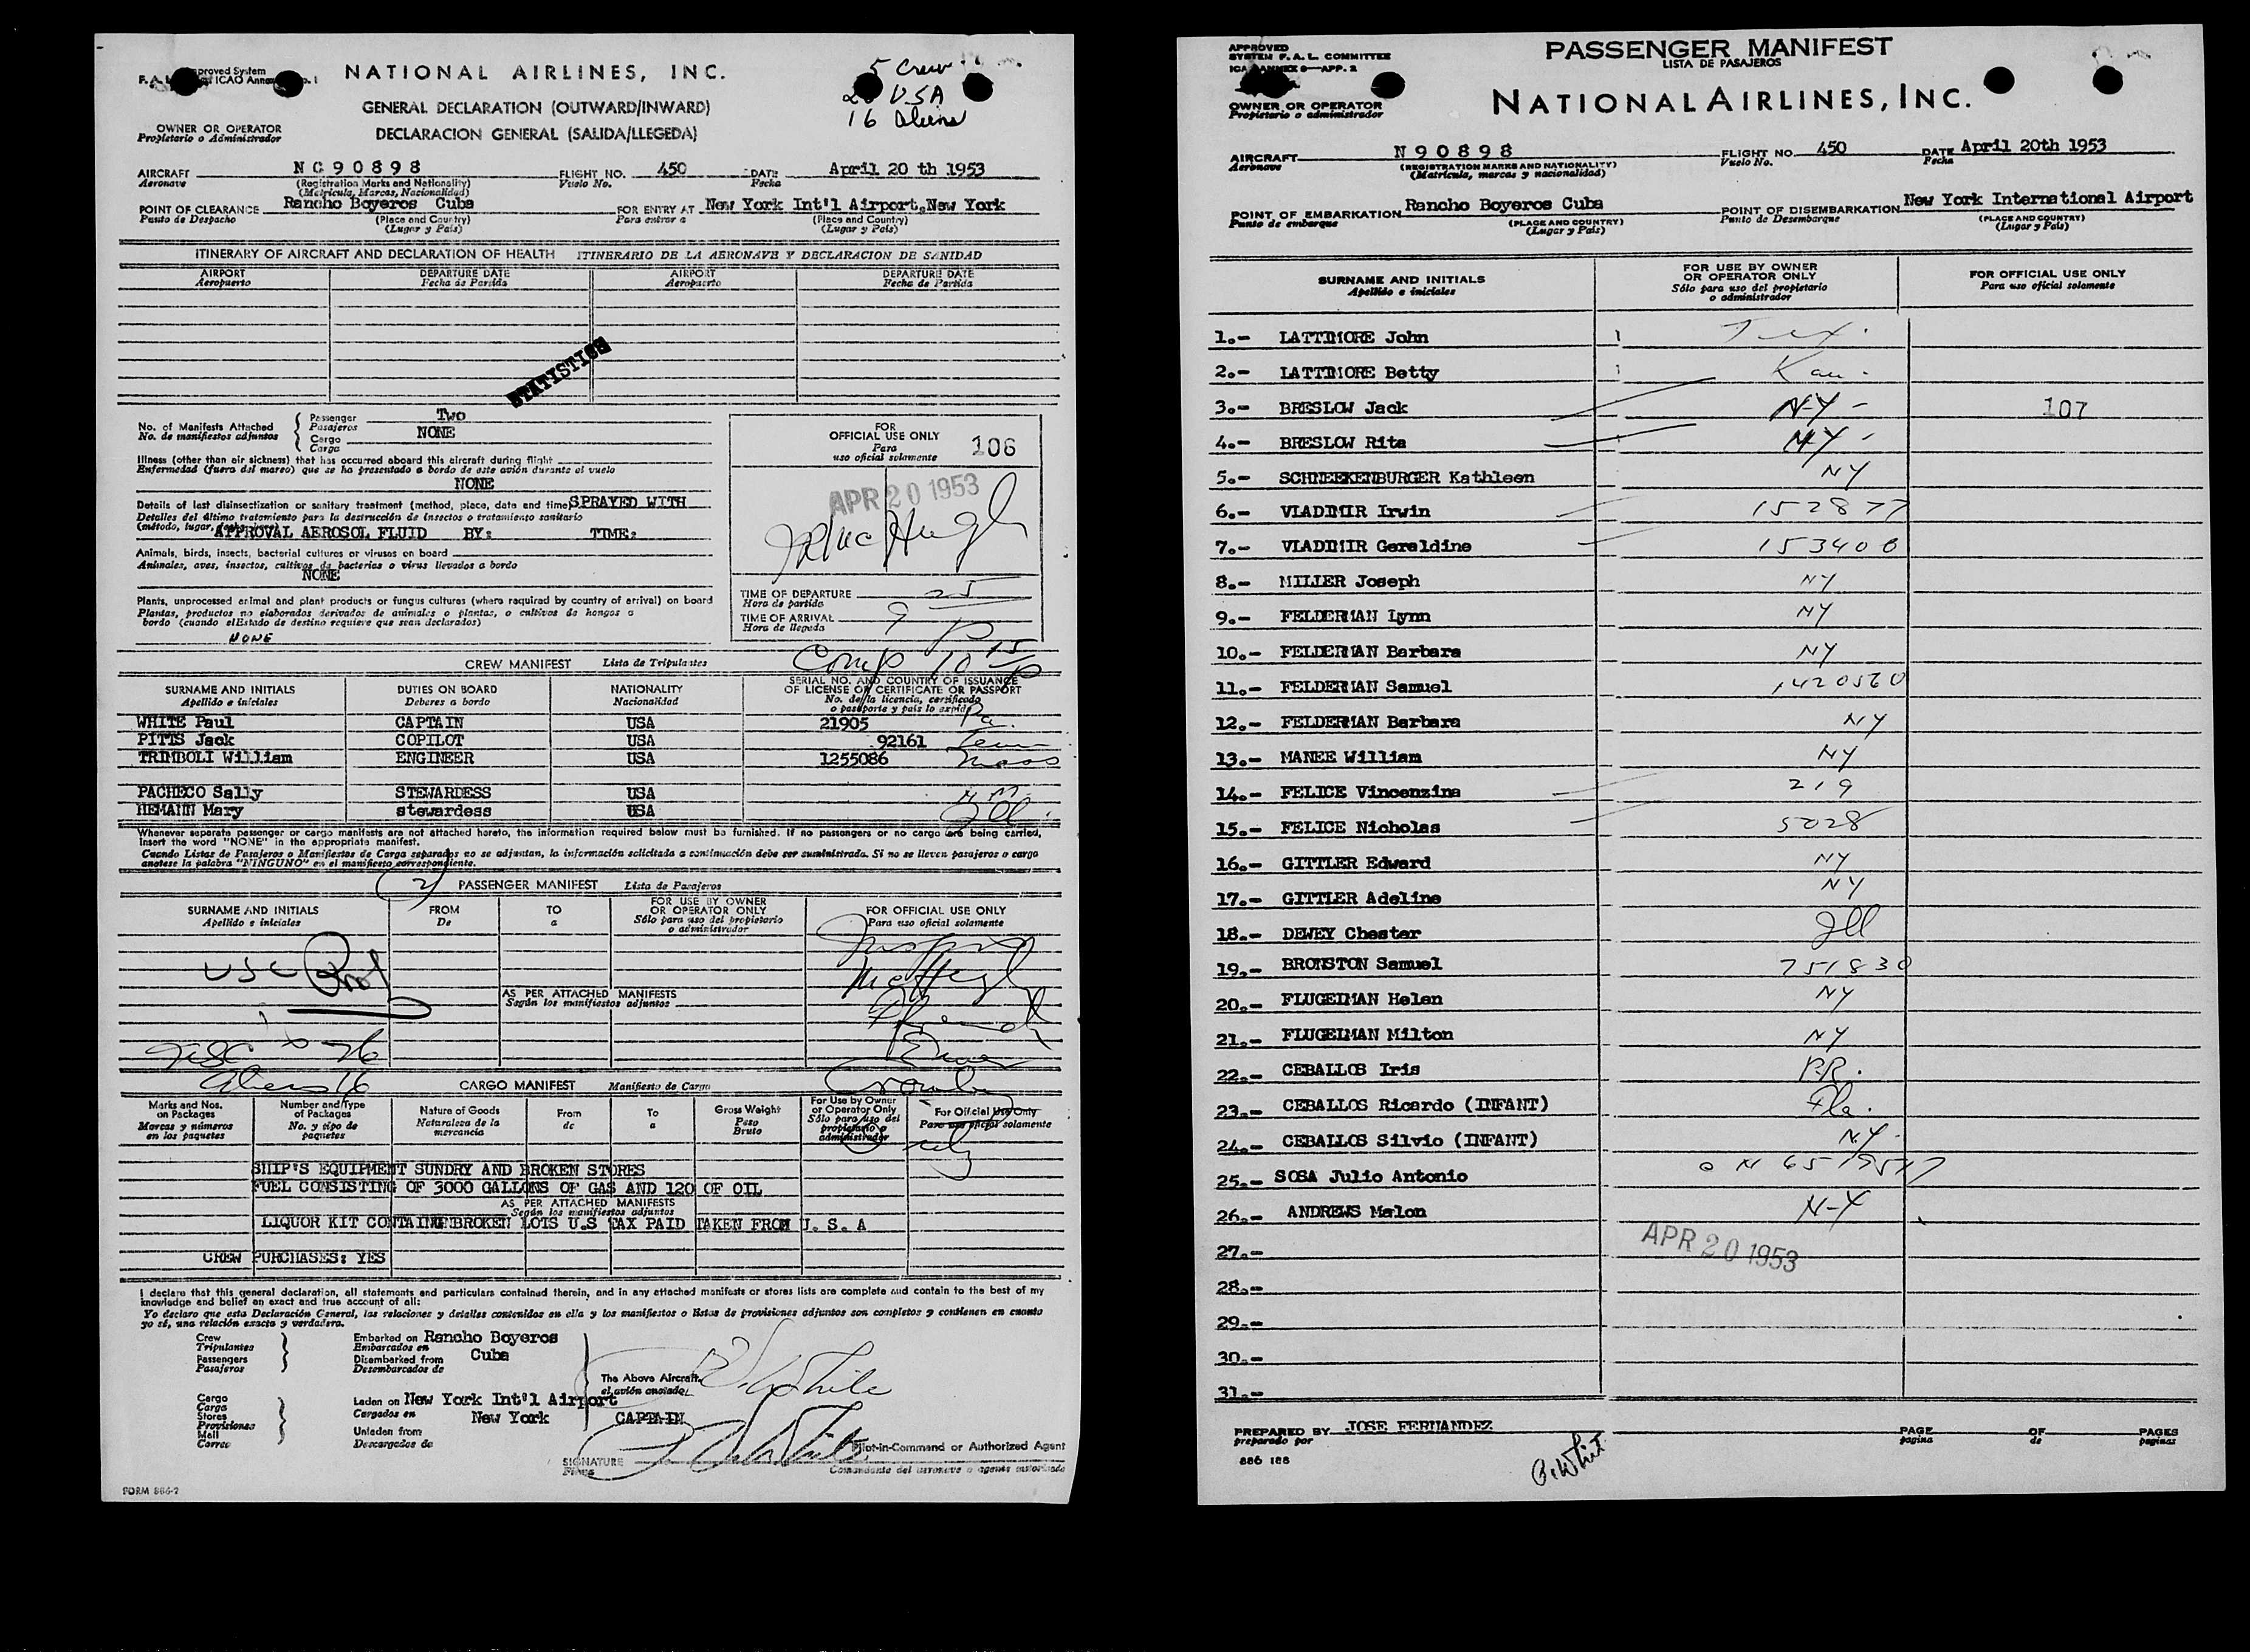 F. A. L. Approved System
ICAO Annex
NATIONAL AIRLINES, INC.
5 Crew
USA
16 Aliens
GENERAL DECLARATION (OUTWARD/INWARD)
DECLARACION GENERAL (SALIDA/LLEGEDA)
OWNER OR OPERATOR
Propietario o Administrador
AIRCRAFT NG90898 FLIGHT NO. 450 DATE April 20 th 1953
Aeronave (Registration Marks and Nationality) Vuelo No. Fecha
(Matricula, Marcas, Nacionalidad)
POINT OF CLEARANCE Rancho Boyeros Cuba FOR ENTRY AT New York Int'l Airport,New York
Punto de Despacho (Place and Country) Para entrar a (Place and Country)
(Lugar y País) (Lugar y País)
ITINERARY OF AIRCRAFT AND DECLARATION OF HEALTH ITINERARIO DE LA AERONAVE Y DECLARACION DE SANIDAD
AIRPORT DEPARTURE DATE AIRPORT DEPARTURE DATE
Aeropuerto Fecha de Partida Aeropuerto Fecha de Partida
STATISTICS
No. of Manifests Attached Passenger Two
No. de manifiestos adjuntos Pasajeros
Cargo NONE
Carga
Illness (other than air sickness) that has occurred aboard this aircraft during flight
Enfermedad (fuera del mareo) que se ha presentado a bordo de este avión durante el vuelo
NONE
Details of last disinsectization or sanitary treatment (method, place, date and time) SPRAYED WITH
Detalles del último tratamiento para la destrucción de insectos o tratamiento sanitario
(método, lugar,
APPROVAL AEROSOL FLUID BY: TIME:
Animals, birds, insects, bacterial cultures or viruses on board
Animales, aves, insectos, cultivos de bacterias o virus llevados a bordo
NONE
Plants, unprocessed animal and plant products or fungus cultures (where required by country of arrival) on board
Plantas, productos no elaborados derivados de animales o plantas, o cultivos de hongos a
bordo (cuando elEstado de destino requiere que sean declarados)
NONE
FOR
OFFICIAL USE ONLY 106
Para
uso oficial solamente
APR 20 1953
TIME OF DEPARTURE 25
Hora de partida
TIME OF ARRIVAL 9
Hora de llegada
CREW MANIFEST Lista de Tripulantes Comp 10 15
SURNAME AND INITIALS DUTIES ON BOARD NATIONALITY SERIAL NO. AND COUNTRY OF ISSUANCE
Apellido e iniciales Deberes a bordo Nacionalidad OF LICENSE OR CERTIFICATE OR PASSPORT
No. de la licencia, certificado
o pasaporte y país lo expide
WHITE Paul CAPTAIN USA 21905 Pa.
PITTS Jack COPILOT USA 92161
TRIMBOLI William ENGINEER USA 1255086 Mass
PACHECO Sally STEWARDESS USA N.M.
HEMANN Mary stewardess USA Ill.
Whenever separate passenger or cargo manifests are not attached hereto, the information required below must be furnished. If no passengers or no cargo are being carried,
insert the word "NONE" in the appropriate manifest.
Cuando Listas de Pasajeros o Manifiestos de Carga separados no se adjuntan, la información solicitada a continuación debe ser suministrada. Si no se lleven pasajeros o cargo
anotese la palabra "NINGUNO" en el manifiesto correspondiente.
2 PASSENGER MANIFEST Lista de Pasajeros
SURNAME AND INITIALS FROM TO FOR USE BY OWNER FOR OFFICIAL USE ONLY
Apellido e iniciales De a OR OPERATOR ONLY Para uso oficial solamente
Sólo para uso del propietario
o administrador
USC
AS PER ATTACHED MANIFESTS
Según los manifiestos adjuntos
26
Aliens 16
CARGO MANIFEST Manifiesto de Cargo
Marks and Nos. Number and Type Nature of Goods From To Gross Weight For Use by Owner For Official Use Only
on Packages of Packages Naturaleza de la de a Peso or Operator Only Para uso oficial solamente
Marcas y números No. y tipo de mercancía Bruto Sólo para uso del
en los paquetes paquetes propietario o
administrador
SHIP'S EQUIPMENT SUNDRY AND BROKEN STORES
FUEL CONSISTING OF 3000 GALLONS OF GAS AND 120 OF OIL
AS PER ATTACHED MANIFESTS
Según los manifiestos adjuntos
LIQUOR KIT BROKEN LOTS U.S TAX PAID TAKEN FROM U. S. A
CREW PURCHASES: YES
I declare that this general declaration, all statements and particulars contained therein, and in any attached manifests or stores lists are complete and contain to the best of my
knowledge and belief an exact and true account of all:
Yo declaro que esta Declaración General, las relaciones y detalles contenidos en ella y los manifiestos o listas de provisiones adjuntos son completos y contienen en cuanto
yo sé, una relación exacta y verdadera.
Crew Embarked on Rancho Boyeros
Tripulantes Embarcados en
Passengers Disembarked from Cuba
Pasajeros Desembarcados de
The Above Aircraft
el avión anotado
Cargo Laden on New York Int'l Airport
Carga Cargados en New York CAPTAIN
Stores
Provisiones Unladen from
Mail Descargados de
Correo
Pilot-in-Command or Authorized Agent
SIGNATURE
Firma Comandante del aeronave o agente autorizado
FORM 886-2
APPROVED
SYSTEM F. A. L. COMMITTEE
ICA ANNEX 9—APP. 2
PASSENGER MANIFEST
LISTA DE PASAJEROS
NATIONAL AIRLINES, INC.
OWNER OR OPERATOR
Propietario o administrador
AIRCRAFT N90898 FLIGHT NO. 450 DATE April 20th 1953
Aeronave (REGISTRATION MARKS AND NATIONALITY) Vuelo No. Fecha
(Matricula, marcas y nacionalidad)
POINT OF EMBARKATION Rancho Boyeros Cuba POINT OF DISEMBARKATION New York International Airport
Punto de embarque (PLACE AND COUNTRY) Punto de Desembarque (PLACE AND COUNTRY)
(Lugar y País) (Lugar y País)
SURNAME AND INITIALS FOR USE BY OWNER FOR OFFICIAL USE ONLY
Apellido e iniciales OR OPERATOR ONLY Para uso oficial solamente
Sólo para uso del propietario
o administrador
1.- LATTIMORE John Tex.
2.- LATTIMORE Betty Kan.
3.- BRESLOW Jack NY - 107
4.- BRESLOW Rita NY -
5.- SCHNEEKENBURGER Kathleen NY
6.- VLADIMIR Irwin 152877
7.- VLADIMIR Geraldine 153400
8.- MILLER Joseph NY
9.- FELDERMAN Lynn NY
10.- FELDERMAN Barbara NY
11.- FELDERMAN Samuel 1420560
12.- FELDERMAN Barbara NY
13.- MANEE William NY
14.- FELICE Vincenzina 219
15.- FELICE Nicholas 5028
16.- GITTLER Edward NY
17.- GITTLER Adeline NY
18.- DEWEY Chester Ill
19.- BRONSTON Samuel 751830
20.- FLUGELMAN Helen NY
21.- FLUGELMAN Milton NY
22.- CEBALLOS Iris P.R.
23.- CEBALLOS Ricardo (INFANT) Fla.
24.- CEBALLOS Silvio (INFANT) N.Y.
25.- SOSA Julio Antonio
26.- ANDREWS Malon N-Y
27.- APR 20 1953
28.-
29.-
30.-
31.-
PREPARED BY JOSE FERNANDEZ PAGE OF PAGES
preparado por pagina de paginas
886 188
P. White